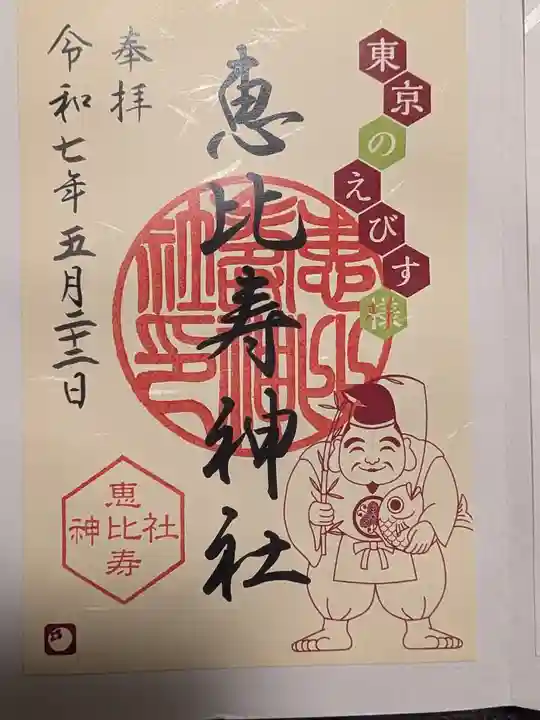 東京のえびす様
恵比寿神社
奉拝
令和七年五月二十二日
恵
神比社
寿